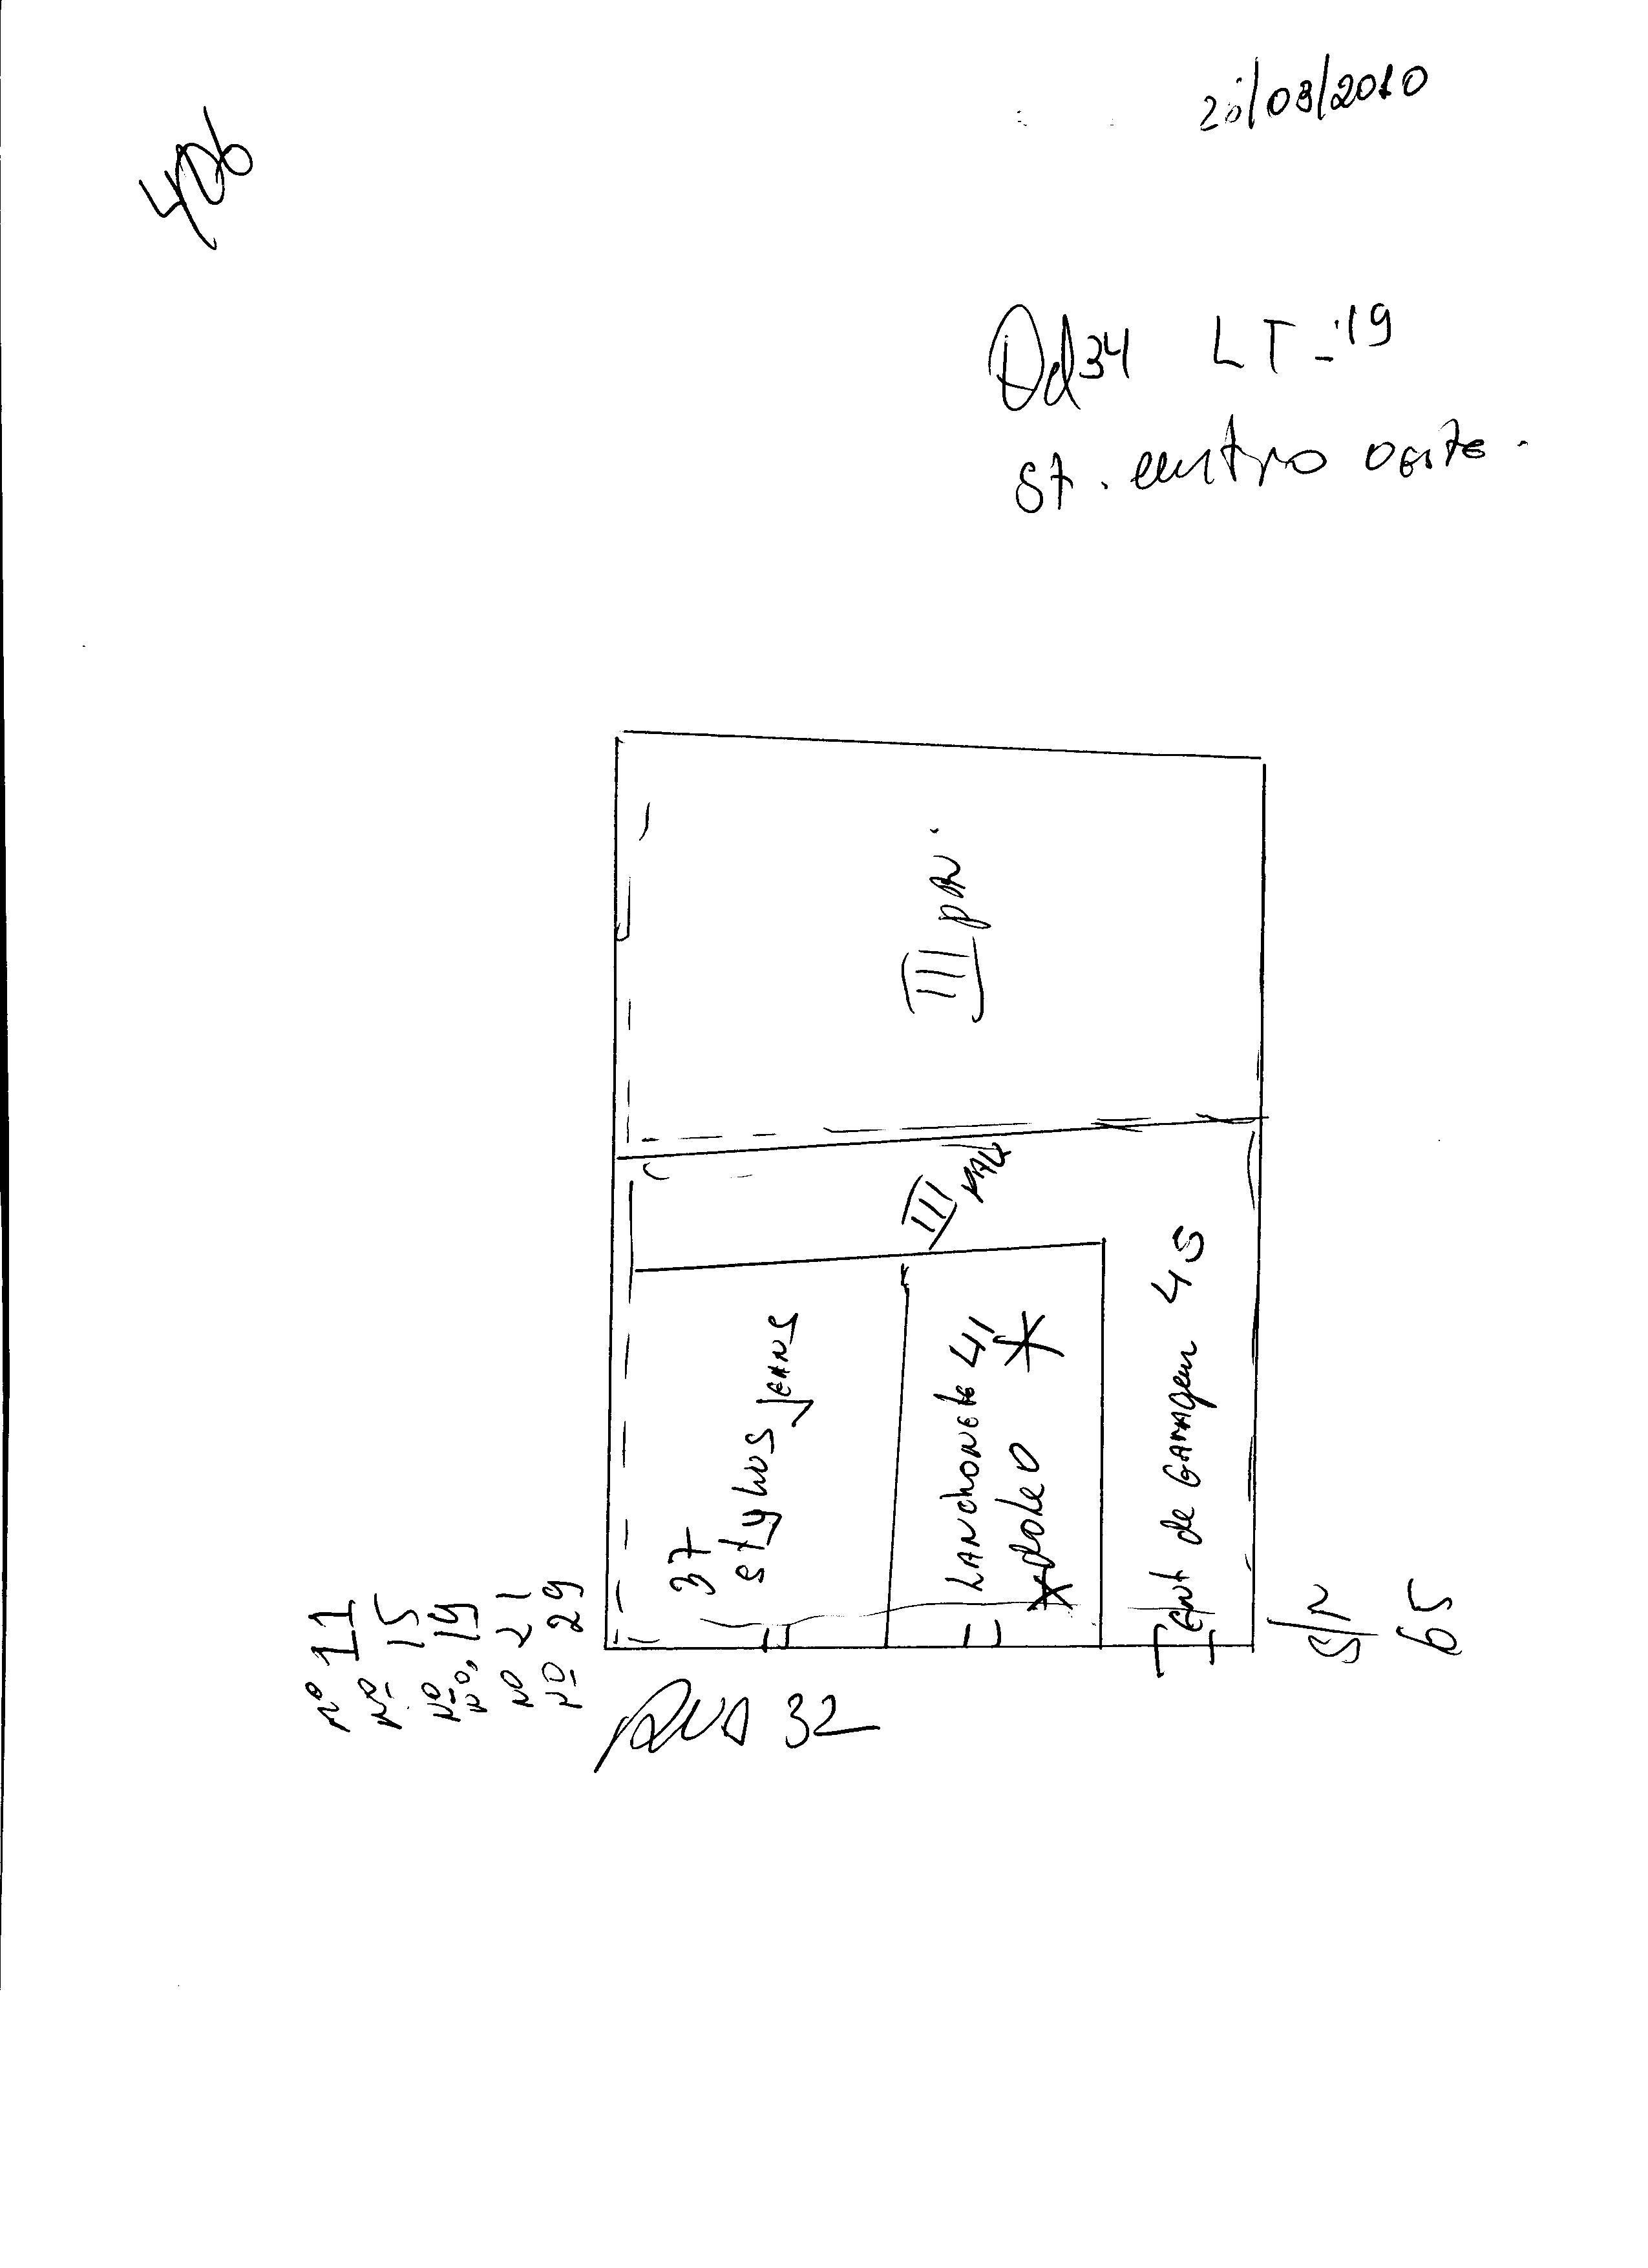 406
/03/2010
Qd 34 LT - 19
St. centro oeste.
III pav.
III pav
37
stylus jeans
Lanchonete 41
Ent de Garagem 45
nº 11
nº 15
nº
nº, 19
nº 21
nº 29
Rua 32
S/N
65